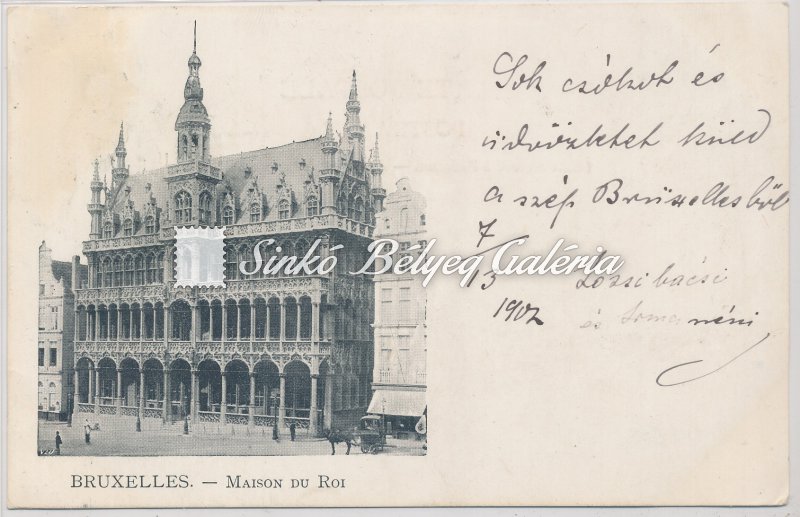 Sok csókot és
üdvözletet küld
a szép Brüxellesből
7
13
1902
bácsi
és Irma néni
Sinkó Bélyeg Galéria
BRUXELLES. — MAISON DU ROI